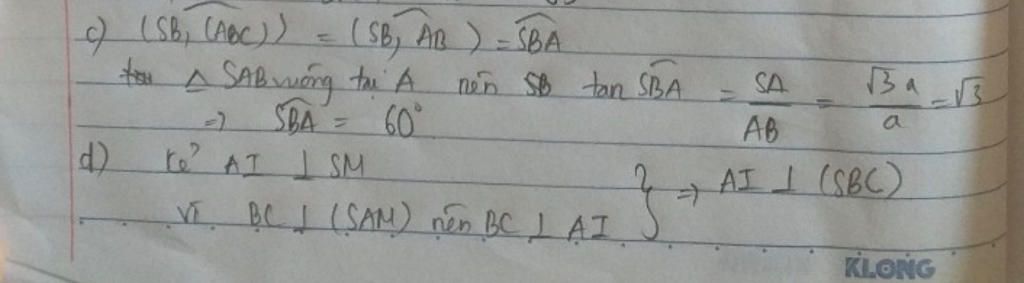 c) (SB, (ABC)) = (SB, AB) = SBA
Δ SAB vuông tại A nên SB tan SBA = SA/AB = √3 a/a = √3
=> SBA = 60°
d) Kẻ AI ⊥ SM
Vì BC ⊥ (SAM) nên BC ⊥ AI } => AI ⊥ (SBC)
KLONG